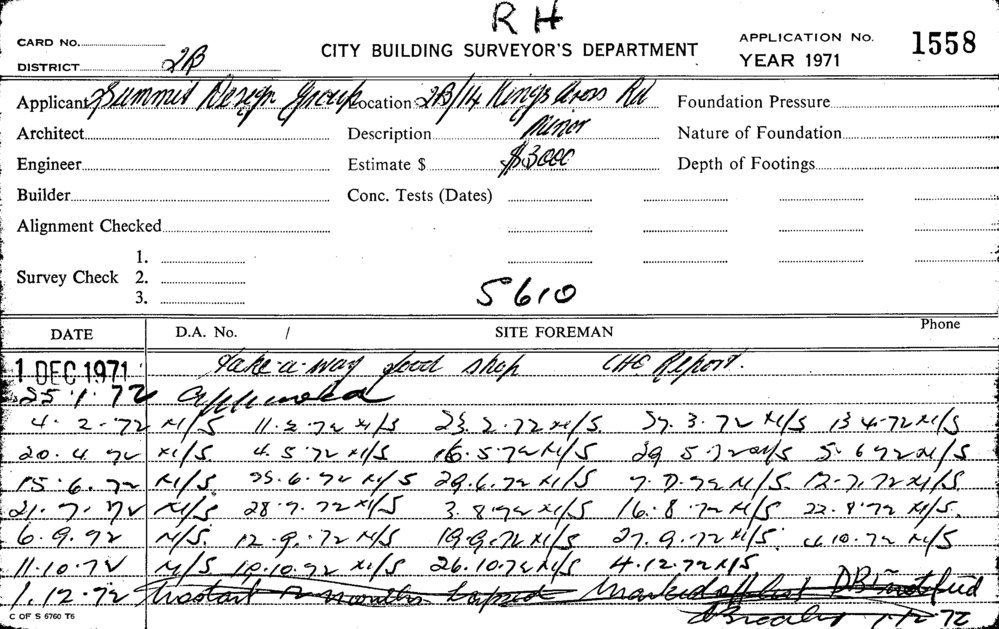 R H
CARD No.
CITY BUILDING SURVEYOR'S DEPARTMENT
APPLICATION No. 1558
DISTRICT 2B
YEAR 1971
Applicant Summit Design Group Location 2B/14 Kings Cross Rd Foundation Pressure
Architect Description Minor Nature of Foundation
Engineer Estimate $ $3000 Depth of Footings
Builder Conc. Tests (Dates)
Alignment Checked
1.
Survey Check 2.
3.
5610
DATE D.A. No. / SITE FOREMAN Phone
1 DEC 1971 Take-a-way food shop CHE Report.
25.1.72 Approved
4.2.72 N/S 11.2.72 N/S 23.2.72 N/S. 27.3.72 N/S 13.4.72 N/S
20.4.72 N/S 4.5.72 N/S 16.5.72 N/S 29.5.72 N/S 5.6.72 N/S
15.6.72 N/S 25.6.72 N/S 29.6.72 N/S 7.7.72 N/S. 12.7.72 N/S
21.7.72 N/S 28.7.72 N/S 3.8.72 N/S 16.8.72 N/S 22.8.72 N/S.
6.9.72 N/S. 12.9.72 N/S 19.9.72 N/S 27.9.72 N/S 4.10.72 N/S
11.10.72 N/S 19.10.72 N/S 26.10.72 N/S 4.12.72 N/S
1.12.72 No start 12 months lapsed Marked off list DBI notified
C OF S 6760 T6 1/12/72